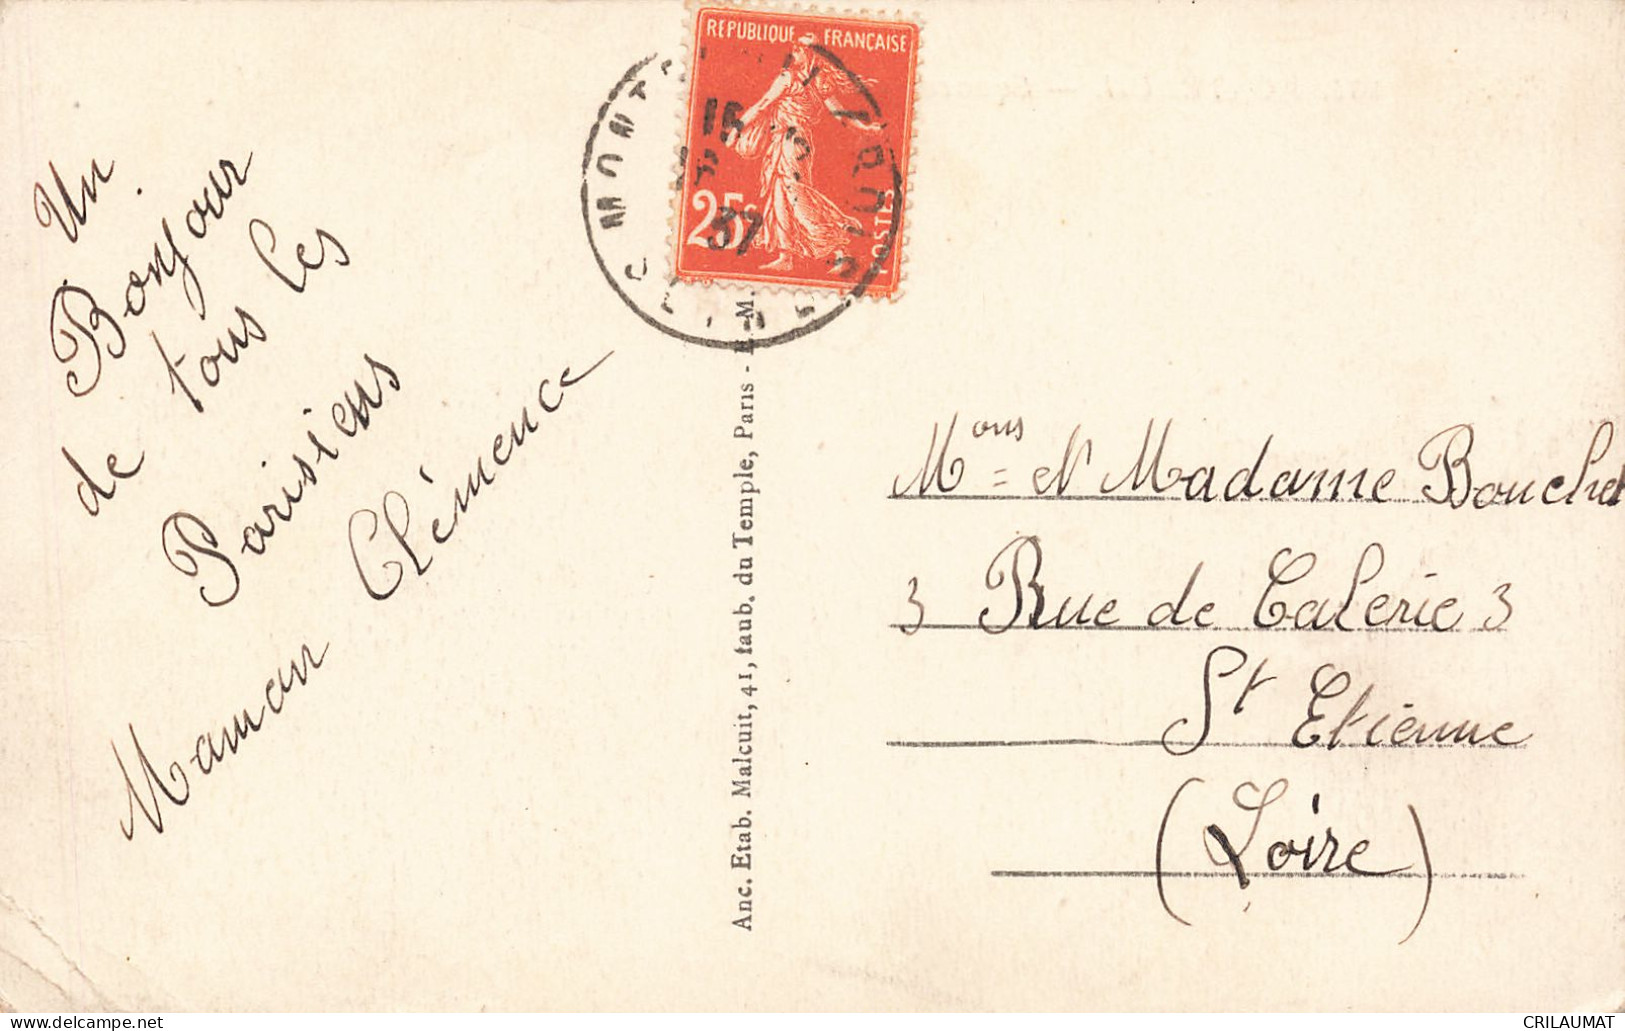 Un
Bonjour
de tous les
Parisiens
Maman Clémence
REPUBLIQUE FRANÇAISE
25c
POSTES
15
37
Anc. Etab. Malcuit, 41, faub. du Temple, Paris -
Mons = et Madame Bouchet
3 Rue de Valérie 3
St Etienne
(Loire)
CRILAUMAT